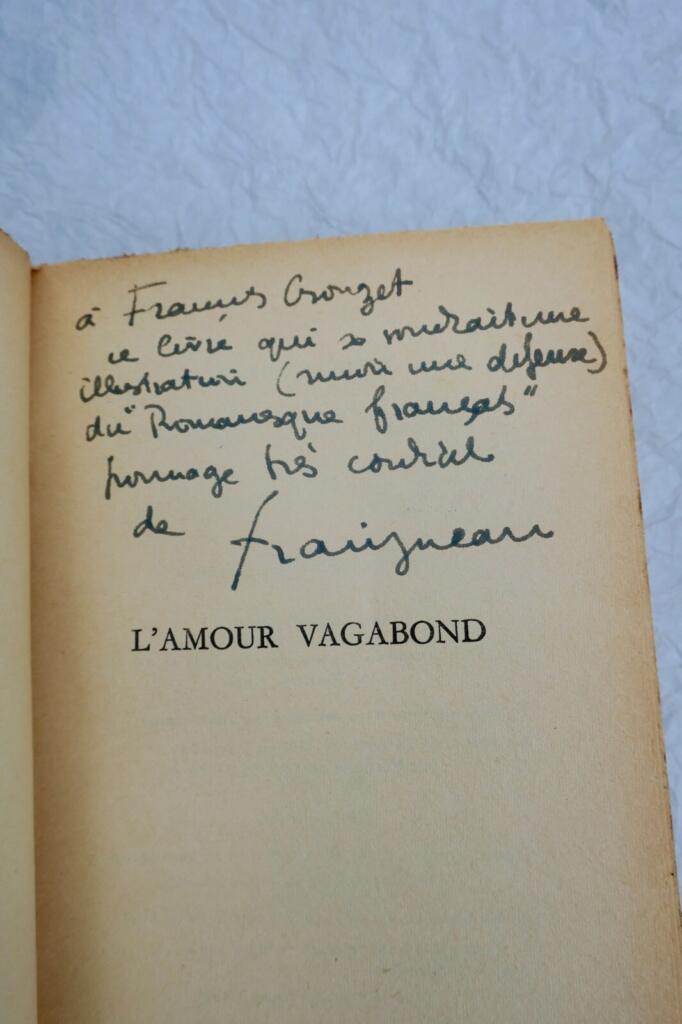 à Francis Crouzet
ce livre qui se voudrait une
illustration (voire une défense)
du "Romanesque français"
hommage très cordial
de Fraigneau
L'AMOUR VAGABOND